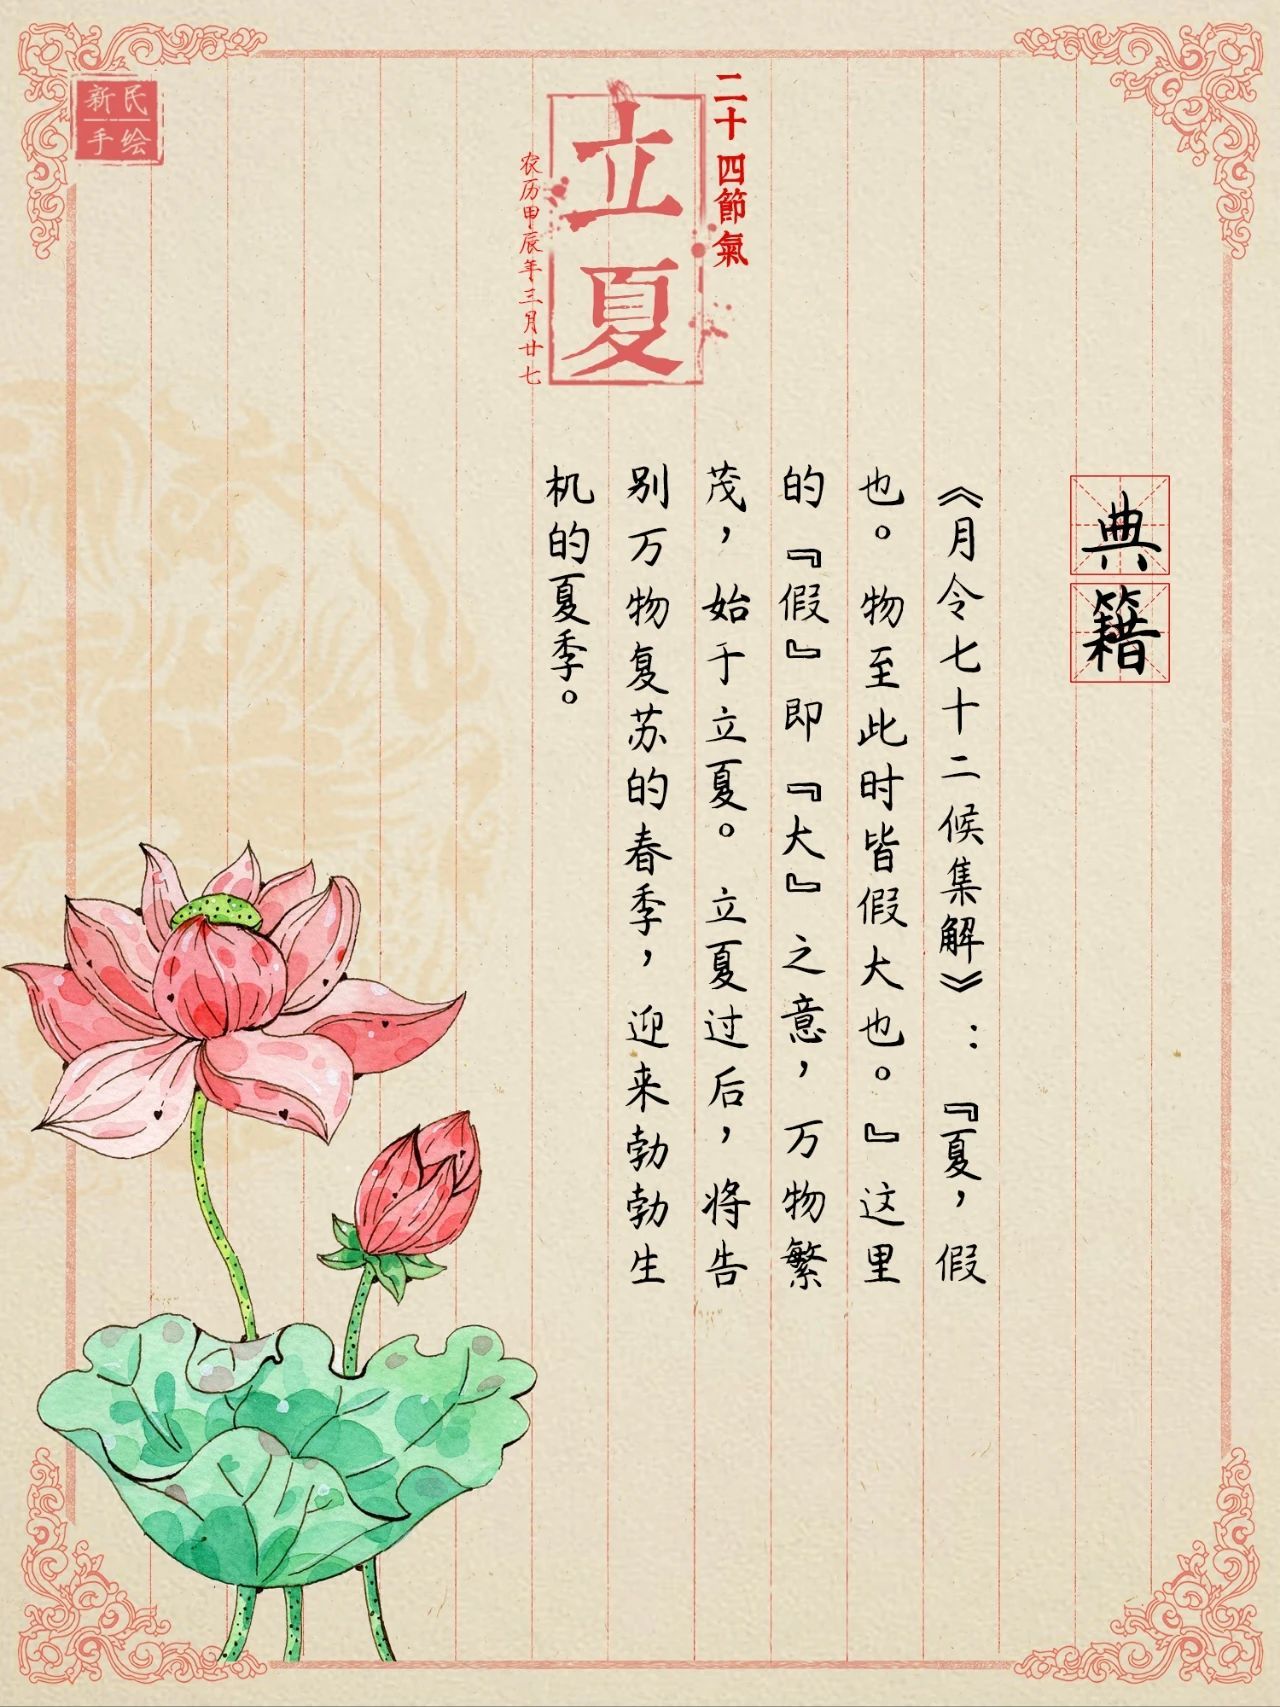 新民
手绘
二十四節氣
立夏
农历甲辰年三月廿七
典籍
《月令七十二候集解》：『夏，假
也。物至此时皆假大也。』这里
的『假』即『大』之意，万物繁
茂，始于立夏。立夏过后，将告
别万物复苏的春季，迎来勃勃生
机的夏季。